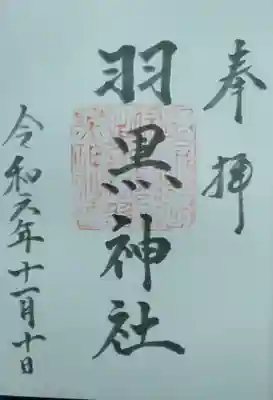 奉拝
羽黒神社
令和元年十一月十日